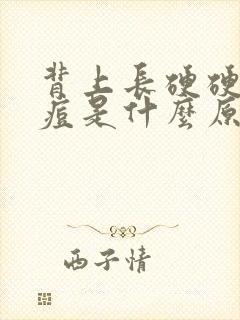 背上長硬硬
痘是什麼原
西子情